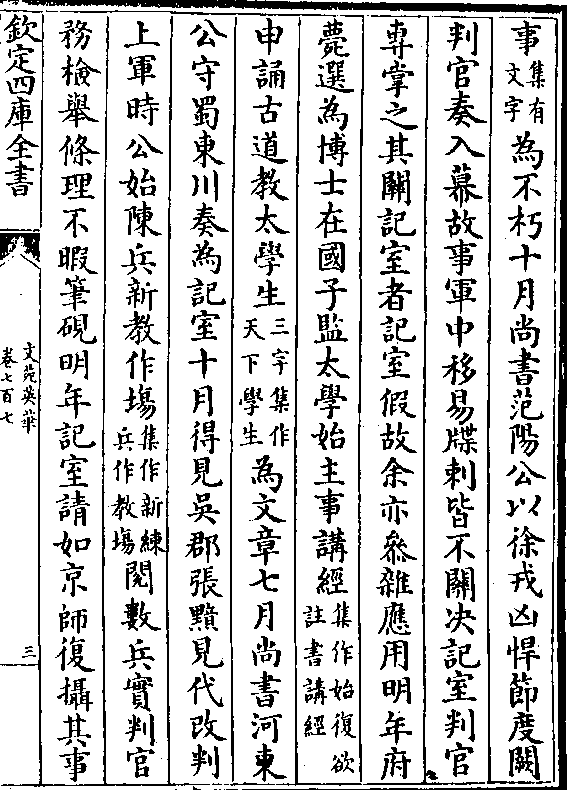 事集有文字為不朽十月尚書范陽公以徐戎凶悍節度闕
判官奏入幕故事軍中移易牒刺皆不關决記室判官
專掌之其關記室者記室假故余亦叅雜應用明年府
薨選為博士在國子監太學始主事講經集作始復欲註書講經
申誦古道教太學生三字集作天下學生為文章七月尚書河東
公守蜀東川奏為記室十月得見吳郡張黯見代改判
上軍時公始陳兵新教作塲集作新練兵作教塲閱數兵實判官
務檢舉條理不暇筆硯明年記室請如京師復攝其事
欽定四庫全書
文苑英華
卷七百七
三